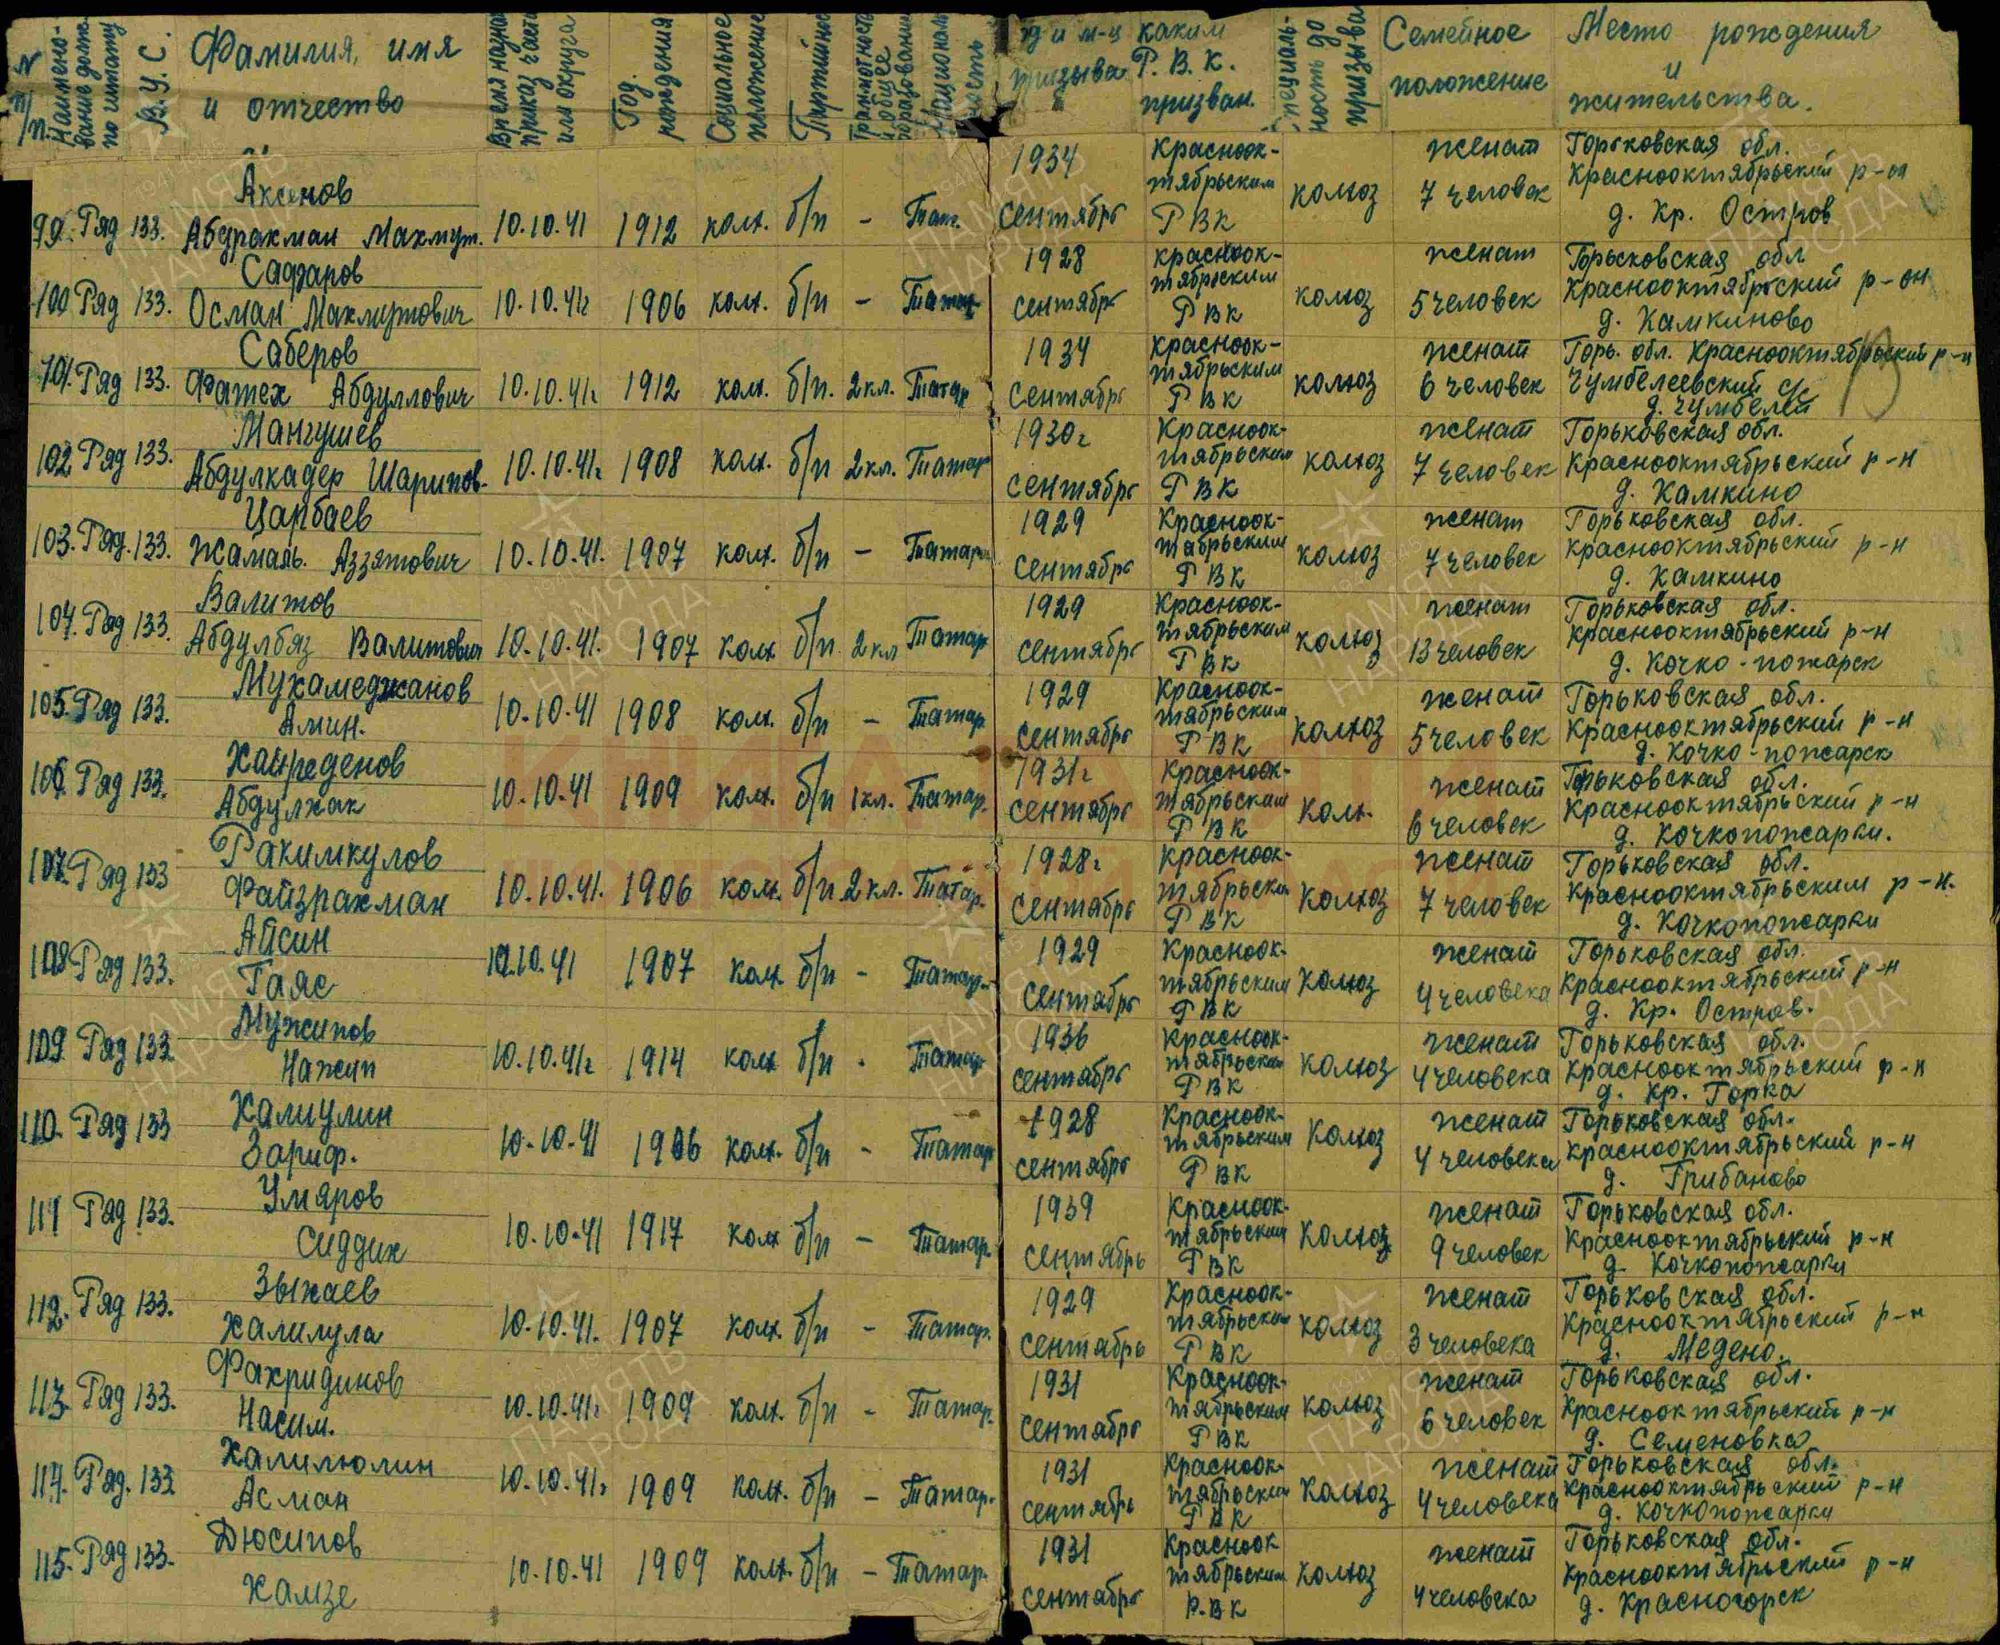 N п/п. Наименование долж. по штату В.У.С. Фамилия, имя и отчество Год рождения Социальное положение Партийность Грамотность и общее образование Национальность призыва каким Р.В.К. призван. Специальность до призыва Семейное положение Место рождения и жительства.
99. Ряд 133. Аксенов Абдрахман Махмут. 10.10.41 1912 колх. б/п - Тат. 1934 сентябрь Красноок-тябрьским РВК колхоз женат 7 человек Горьковская обл. Краснооктябрьский р-он д. Кр. Остров
100 Ряд 133. Сафаров Осман Махмутович 10.10.41г 1906 колх. б/п - Татар 1928 сентябрь Красноок-тябрьским РВК колхоз женат 5 человек Горьковская обл Краснооктябрьский р-он д. Камкиново
101. Ряд 133. Саберов Фатех Абдуллович 10.10.41г 1912 колх. б/п. 2кл. Татар 1934 сентябрь Красноок-тябрьским РВК колхоз женат 6 человек Горь. обл. Краснооктябрьский р-н Чумбелеевский с/с д. Чумбелей
13
102 Ряд 133. Мангушев Абдулкадер Шарипов. 10.10.41г 1908 колх. б/п 2кл. Татар 1930г сентябрь Красноок-тябрьским РВК колхоз женат 7 человек Горьковская обл. Краснооктябрьский р-н д. Камкино
103. Ряд. 133. Царбаев Жамаль. Аззятович 10.10.41. 1907 колх. б/п - Татар 1929 сентябрь Красноок-тябрьским РВК колхоз женат 7 человек Горьковская обл. Краснооктябрьский р-н д. Камкино
104. Ряд 133. Валитов Абдулбяз Валитович 10.10.41. 1907 колх б/п 2кл Татар 1929 сентябрь Красноок-тябрьским РВК колхоз женат 13 человек Горьковская обл. Краснооктябрьский р-н д. Кочко-пожарск
105. Ряд 133. Мухамеджанов Амин. 10.10.41 1908 колх. б/п - Татар. 1929 сентябрь Красноок-тябрьским РВК колхоз женат 5 человек Горьковская обл. Краснооктябрьский р-н д. Кочко-пожарск
106. Ряд 133. Хайреденов Абдулхак 10.10.41 1909 колх. б/п 1кл. Татар. 1931г сентябрь Красноок-тябрьским РВК колх. женат 6 человек Горьковская обл. Краснооктябрьский р-н д. Кочкопожарки.
107. Ряд 133 Рахимкулов Файзрахман 10.10.41. 1906 колх. б/п 2кл. Татар. 1928г сентябрь Красноок-тябрьским РВК колхоз женат 7 человек Горьковская обл. Краснооктябрьским р-н. д. Кочкопожарки
108 Ряд 133. Айсин Гаяс 10.10.41 1907 колх б/п - Татар. 1929 сентябрь Красноок-тябрьским РВК колхоз женат 4 человека Горьковская обл. Краснооктябрьский р-н д. Кр. Остров.
109. Ряд 133. Мужипов Нажип 10.10.41г 1914 колх б/п - Татар 1936 сентябрь Красноок-тябрьским РВК колхоз женат 4 человека Горьковская обл. Краснооктябрьский р-н д. Кр. Горка
110. Ряд 133 Халиулин Зариф. 10.10.41 1906 колх. б/п - Татар 1928 сентябрь Красноок-тябрьским РВК колхоз женат 4 человека Горьковская обл. Краснооктябрьский р-н д. Грибаново
111 Ряд 133. Умяров Сиддик 10.10.41 1917 колх б/п - Татар. 1939 сентябрь Красноок-тябрьским РВК колхоз женат 9 человек Горьковская обл. Краснооктябрьский р-н д. Кочкопожарки
112. Ряд 133. Зыкаев Халилула 10.10.41. 1907 колх. б/п - Татар. 1929 сентябрь Красноок-тябрьским РВК колхоз женат 3 человека Горьковская обл. Краснооктябрьский р-н д. Медено.
113. Ряд 133. Фахридинов Насим. 10.10.41г 1909 колх. б/п - Татар. 1931 сентябрь Красноок-тябрьским РВК колхоз женат 6 человек Горьковская обл. Краснооктябрьский р-н д. Семеновка
114. Ряд. 133 Халилюлин Асман 10.10.41г 1909 колх. б/п - Татар. 1931 сентябрь Красноок-тябрьским РВК колхоз женат 4 человека Горьковская обл. Краснооктябрьский р-н д. Кочкопожарки
115. Ряд 133. Дюсипов Хамзе 10.10.41 1909 колх. б/п - Татар. 1931 сентябрь Красноок тябрьским Р.ВК колхоз женат 4 человека Горьковская обл. Краснооктябрьский р-н д. Красногорск
ПАМЯТЬ НАРОДА
1941-1945